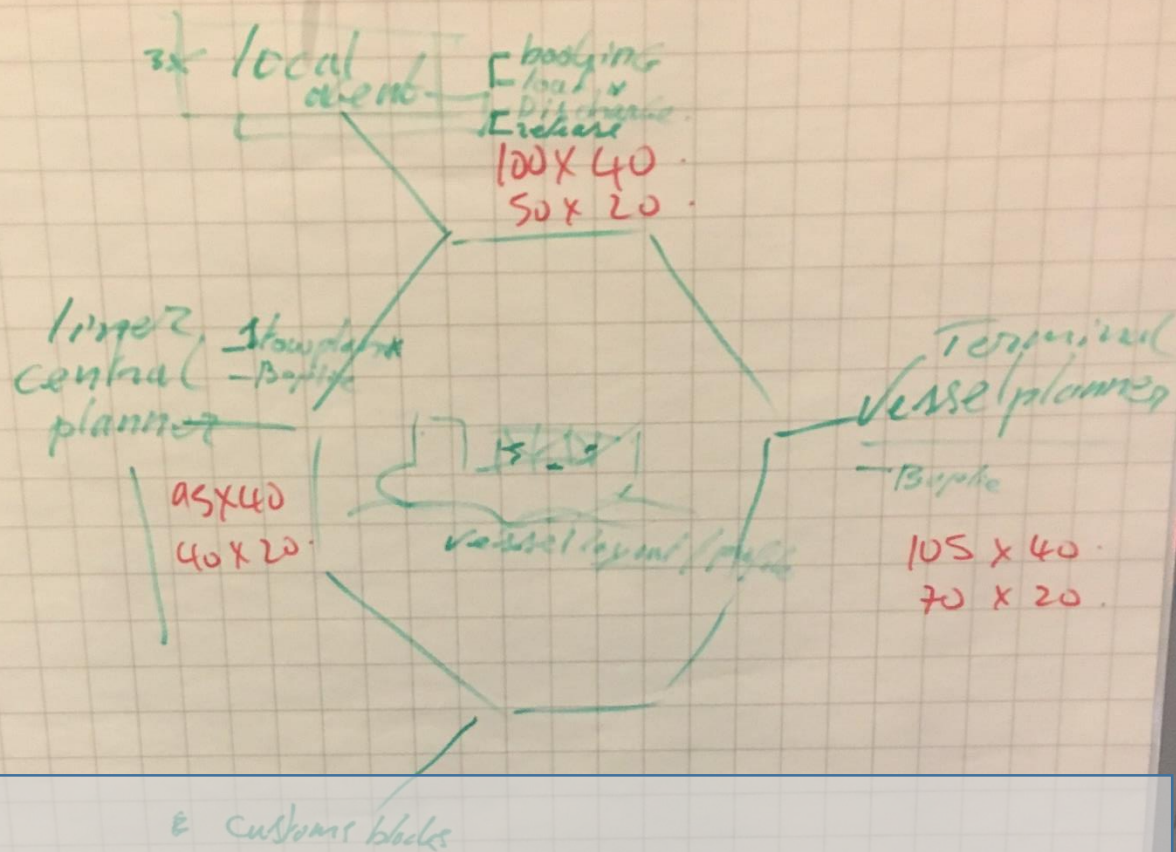 3x local
agent
booking
load
Discharge
release
100 X 40
50 x 20
liner
central
planner
- Stowplan
- Baplie
95X40
40 X 20
vessel layout / profile
Terminal
Vesselplanner
- Baplie
105 x 40
70 x 20
customs blocks